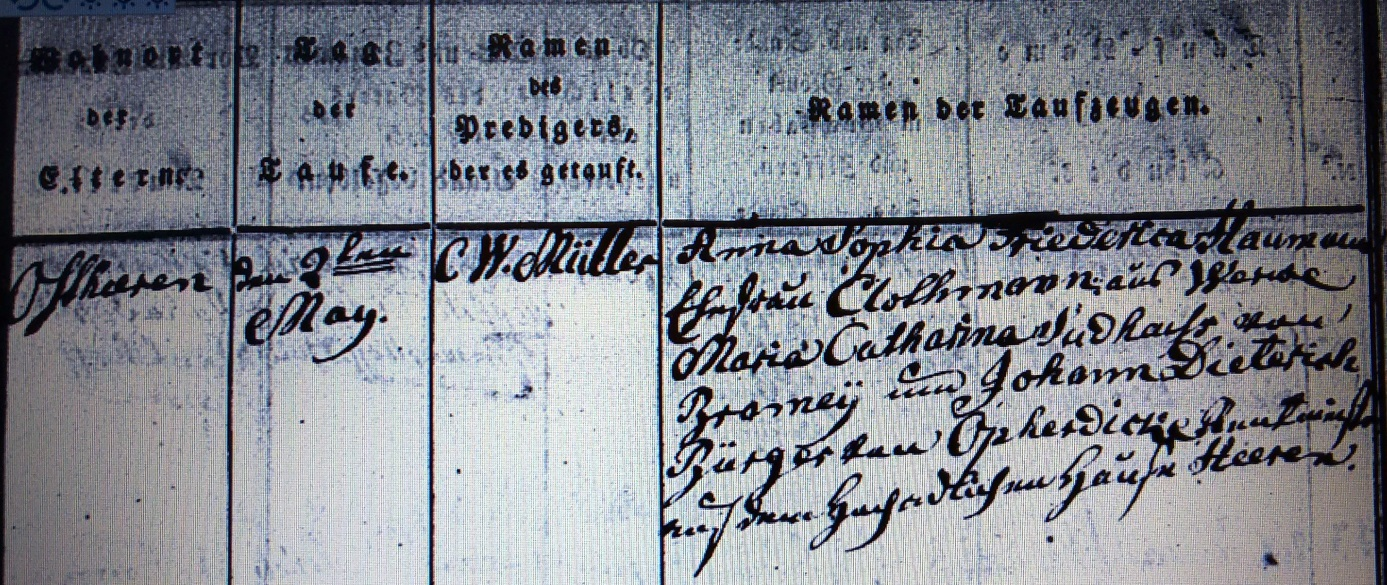 Wohnort
der
Eltern.
Tag
der
Taufe.
Namen
des
Predigers,
der es getauft.
Namen der Taufzeugen.
Ostheeren
den 2ten
May.
C W. Müller
Anna Sophia Friederica Naumann
Ehefrau Clothmann aus Werne
Maria Catharina Südhaus von
Bramey und Johann Dieterich
Bürger von Opherdicke Rentmeister
auf dem Hochadlichen Hause Heeren.